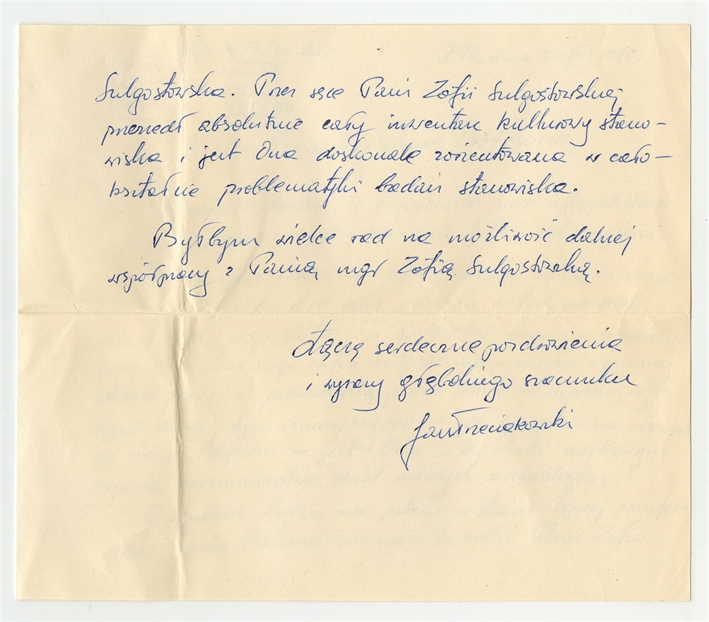 Sulgostowska. Przez ręce Pani Zofii Sulgostowskiej
przeszedł absolutnie cały inwentarz kulturowy stano-
wiska i jest Ona doskonale zorientowana w cało-
kształcie problematyki badań stanowiska.
Byłbym wielce rad na możliwość dalszej
współpracy z Panią mgr Zofią Sulgostowską.
Łączę serdeczne pozdrowienia
i wyrazy głębokiego szacunku
Jan Trzeciakowski